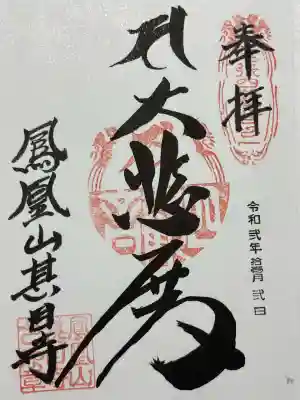 奉拝
大悲殿
鳳凰山甚目寺
令和弐年拾壱月弐日